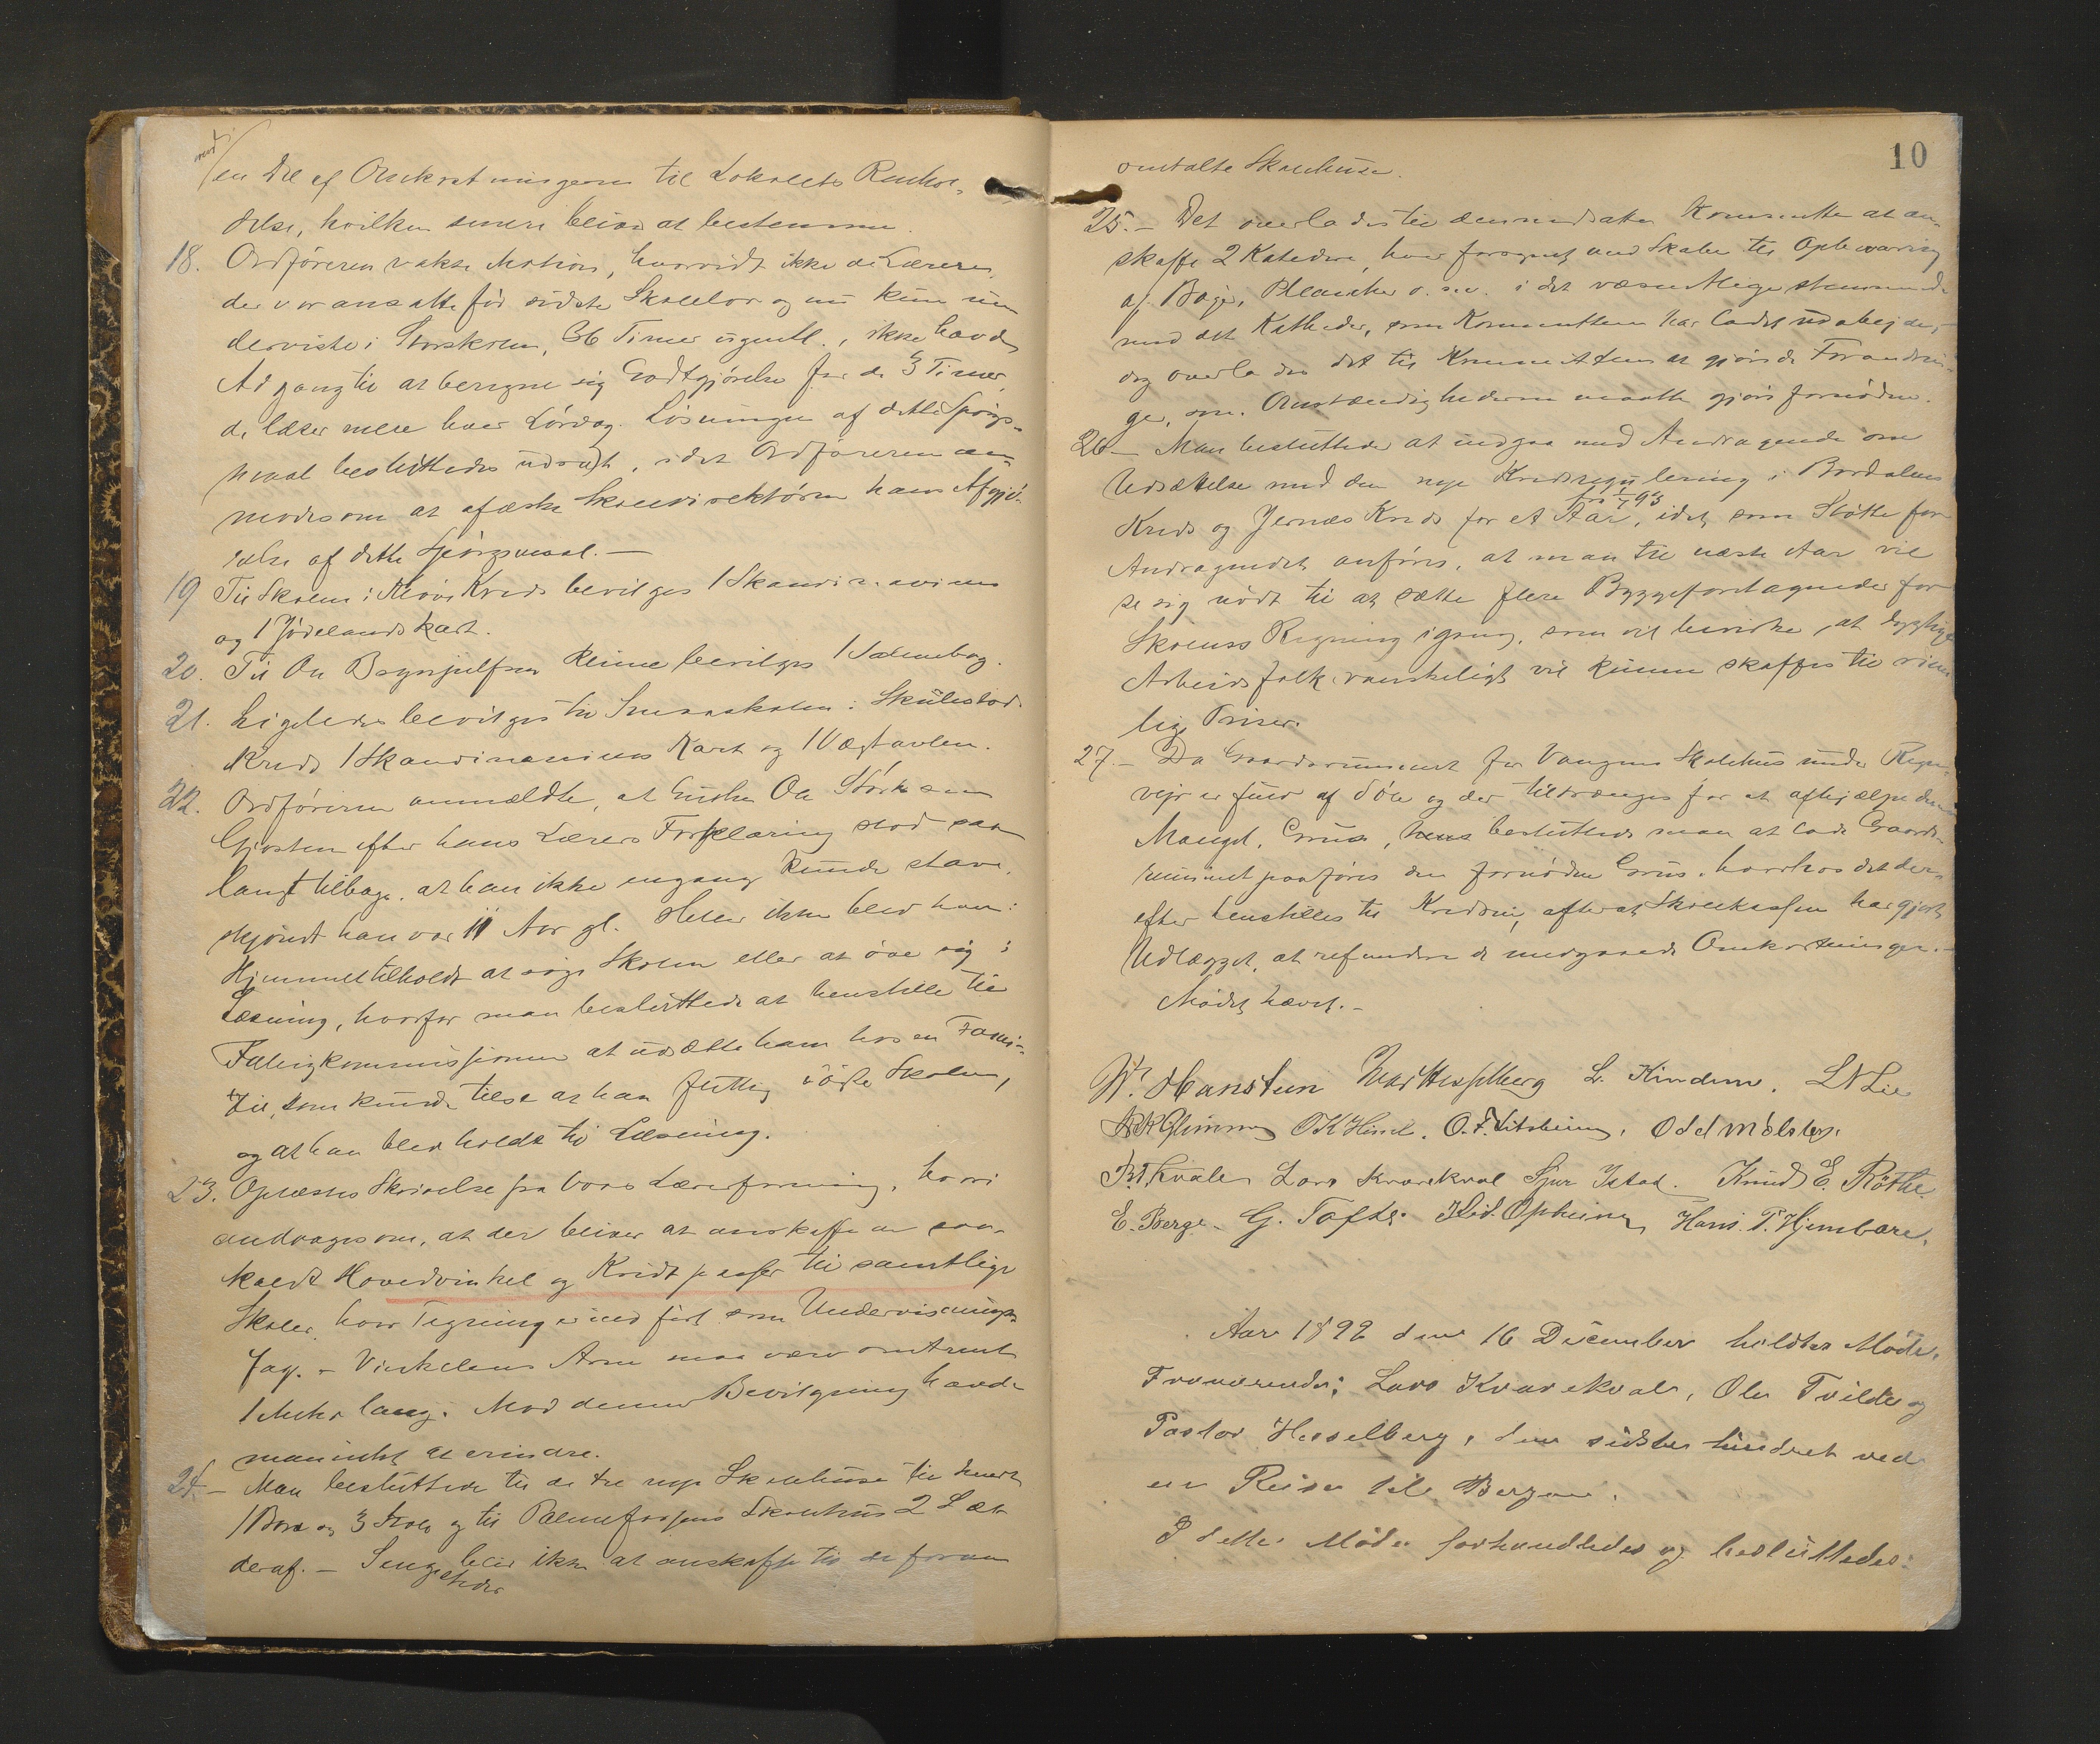 mod
en Del af Omkostningerne til Lokalets Renhol-
delse, hvilken senere bliver at bestemme.
18. Ordføreren vakte Motion, hvorvidt ikke de Lærere,
der var ansatte før sidste Skolelov og nu kun un
derviste i Storskolen, 36 Timer ugentl., ikke havde
Adgang til at beregne sig Godtgjørelse for de 3 Timer,
de læser mere hver Lørdag. Løsningen af dette Spørgs-
maal besluttedes udsat, idet Ordføreren an-
modes om at afæske Skoledirektøren hans Afgjø-
relse af dette Spørgsmaal. —
19 Til Skolen i Kreds bevilges 1 Skandinaviens
og 1 Jødelands Kart.
20. Til Ole Brynjulfsen Reime bevilges 1 Salmebog.
21. Ligeledes bevilges til Smaaskolen i Skulestad
Kreds 1 Skandinaviens Kart og 1 Vægtavlen.
22. Ordføreren anmeldte, at Gutten Ole
Gjosten efter hans Lærers Forklaring stod saa
langt tilbage, at han ikke engang kunde stave,
skjøndt han var 11 Aar gl. Heller ikke blev han i
Hjemmet tilholdt at søge Skolen eller at øve sig i
Læsning, hvorfor man besluttede at henstille til
Fattigkommissionen at udsætte ham hos en Fami-
lie, som kunde tilse at han flittig søgte Skolen,
og at han blev holdt til Læsning.
23. Oplæstes Skrivelse fra Voss Lærerforening, hvori
andrages om, at der bliver at anskaffe en saa-
kaldt Hovedvinkel og Kridtpasser til samtlige
Skoler, hvor Tegning er indført som Undervisnings-
fag. - Vinkelens Arm maa være omtrent
1 Meter lang. Mod denne Bevilgning havde
man intet at erindre.
24. - Man besluttede til de tre nye Skolehuse til hvert
1 Bord og 3 Stole og til Palmeforsens Skolehus 2 Sæt
deraf. - Sengesteder bliver ikke at anskaffe til de foran
10
omtalte Skolehuse.
25. - Det overlades til den nedsatte Komite at an-
skaffe 2 Katedre, hver forsynet med Skabe til Opbevaring
af Bøger, Plancher o. s. v. i det væsentlige stemmende
med det Katheder, som Kommitteen har ladet udarbejde,
dog overlades det til Kommitteen at gjøre de Forandrin-
ger, som Omstændighederne maatte gjøre fornødne.
26 - Man besluttede at indgaa med Andragende om
Udsættelse med den nye Kredsregulering i Bordalens
Kreds og Jernæs Kreds for et Aar, fra 1/1 93 idet som Støtte for
Andragendet anføres, at man til næste Aar vil
se sig nødt til at sætte flere Byggeforetagender for
Skolens Regning igang, som vil bevirke, at dygtige
Arbeidsfolk vanskeligt vil kunne skaffes til rime
lige Priser.
27. - Da Gaardsrummet for Vangens Skolehus under Regn-
vejr er fuld af Søle og der tiltrænges for at afhjælpe denne
Mangel, Grus, besluttede man at lade Gaards-
rummet paaføres den fornødne Grus, hvorhos det der-
efter henstilles til Kredsen, efterat Skolekassen har gjort
Udlægget, at refundere de medgaaede Omkostninger. -
Mødet hævet. -
W. Hanstein Hesselberg L. Kindem. L N Lie
Glimme O K Hirsl. O. F. Litsheim, Odd Mølster,
Kvale Lars Kvarekval Sjur Istad. Knud E. Røthe
E. Berge. G. Tofte. Kld. Opheim, Hans T. Hjembare.
Aar 1892 den 16 December holdtes Møde.
Fraværende: Lars Kvarekvale, Ole Tvilde og
Pastor Hesselberg, den sidste hindret ved
en Reise til Bergen.
I dette Møde forhandledes og besluttedes: